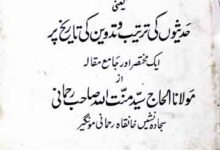 یعنی
حدیثوں کی ترتیب و تدوین کی تاریخ پر
ایک مختصر اور جامع مقالہ
از
مولانا الحاج سید منت اللہ صاحب رحمانی
سجادہ نشیں خانقاہ رحمانی مونگیر